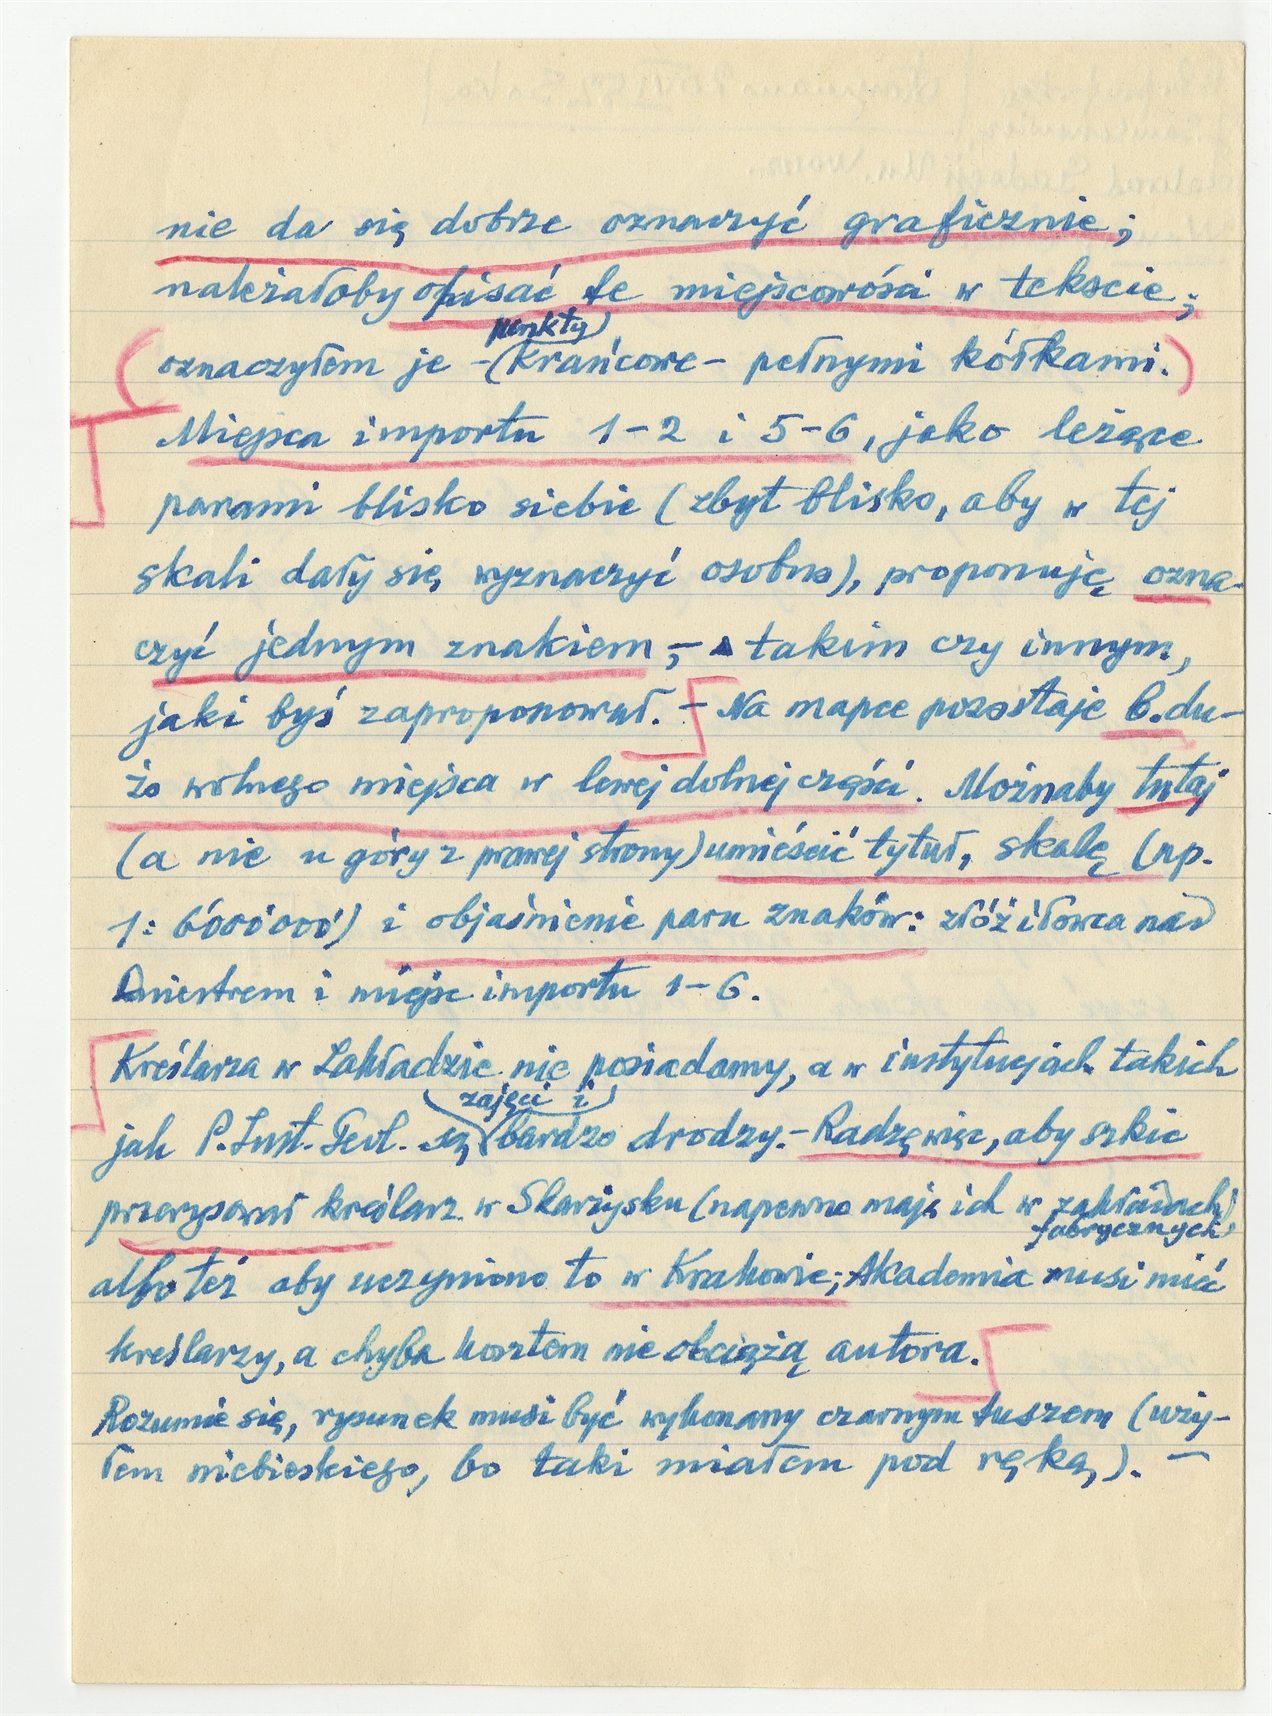 nie da się dobrze oznaczyć graficznie;
należałoby opisać te miejscowości w tekscie;
punkty
oznaczyłem je -(Krańcowe- pełnymi kółkami.)
Miejsca importu 1-2 i 5-6, jako leżące
parami blisko siebie (zbyt blisko, aby w tej
skali dały się wyznaczyć osobno), proponuję ozna-
czyć jednym znakiem, - takim czy innym,
jaki byś zaproponował. - Na mapce pozostaje b. du-
żo wolnego miejsca w lewej dolnej części. Możnaby tutaj
(a nie u góry z prawej strony) umieścić tytuł, skalę (np.
1: 6'000'000') i objaśnienie paru znaków: złóż iłowca nad
Dniestrem i miejsc importu 1-6.
Kreślarza w Zakładzie nie posiadamy, a w instytucjach takich
zajęci i
jak P. Inst. Geol. są bardzo drodzy. - Radzę więc, aby szkic
przerysował kreślarz w Skarżysku (napewno mają ich w zakładach
fabrycznych)
albo też aby uczyniono to w Krakowie; Akademia musi mieć
kreślarzy, a chyba kosztem nie obciążą autora.
Rozumie się, rysunek musi być wykonany czarnym tuszem (uży-
łem niebieskiego, bo taki miałem pod ręką). -